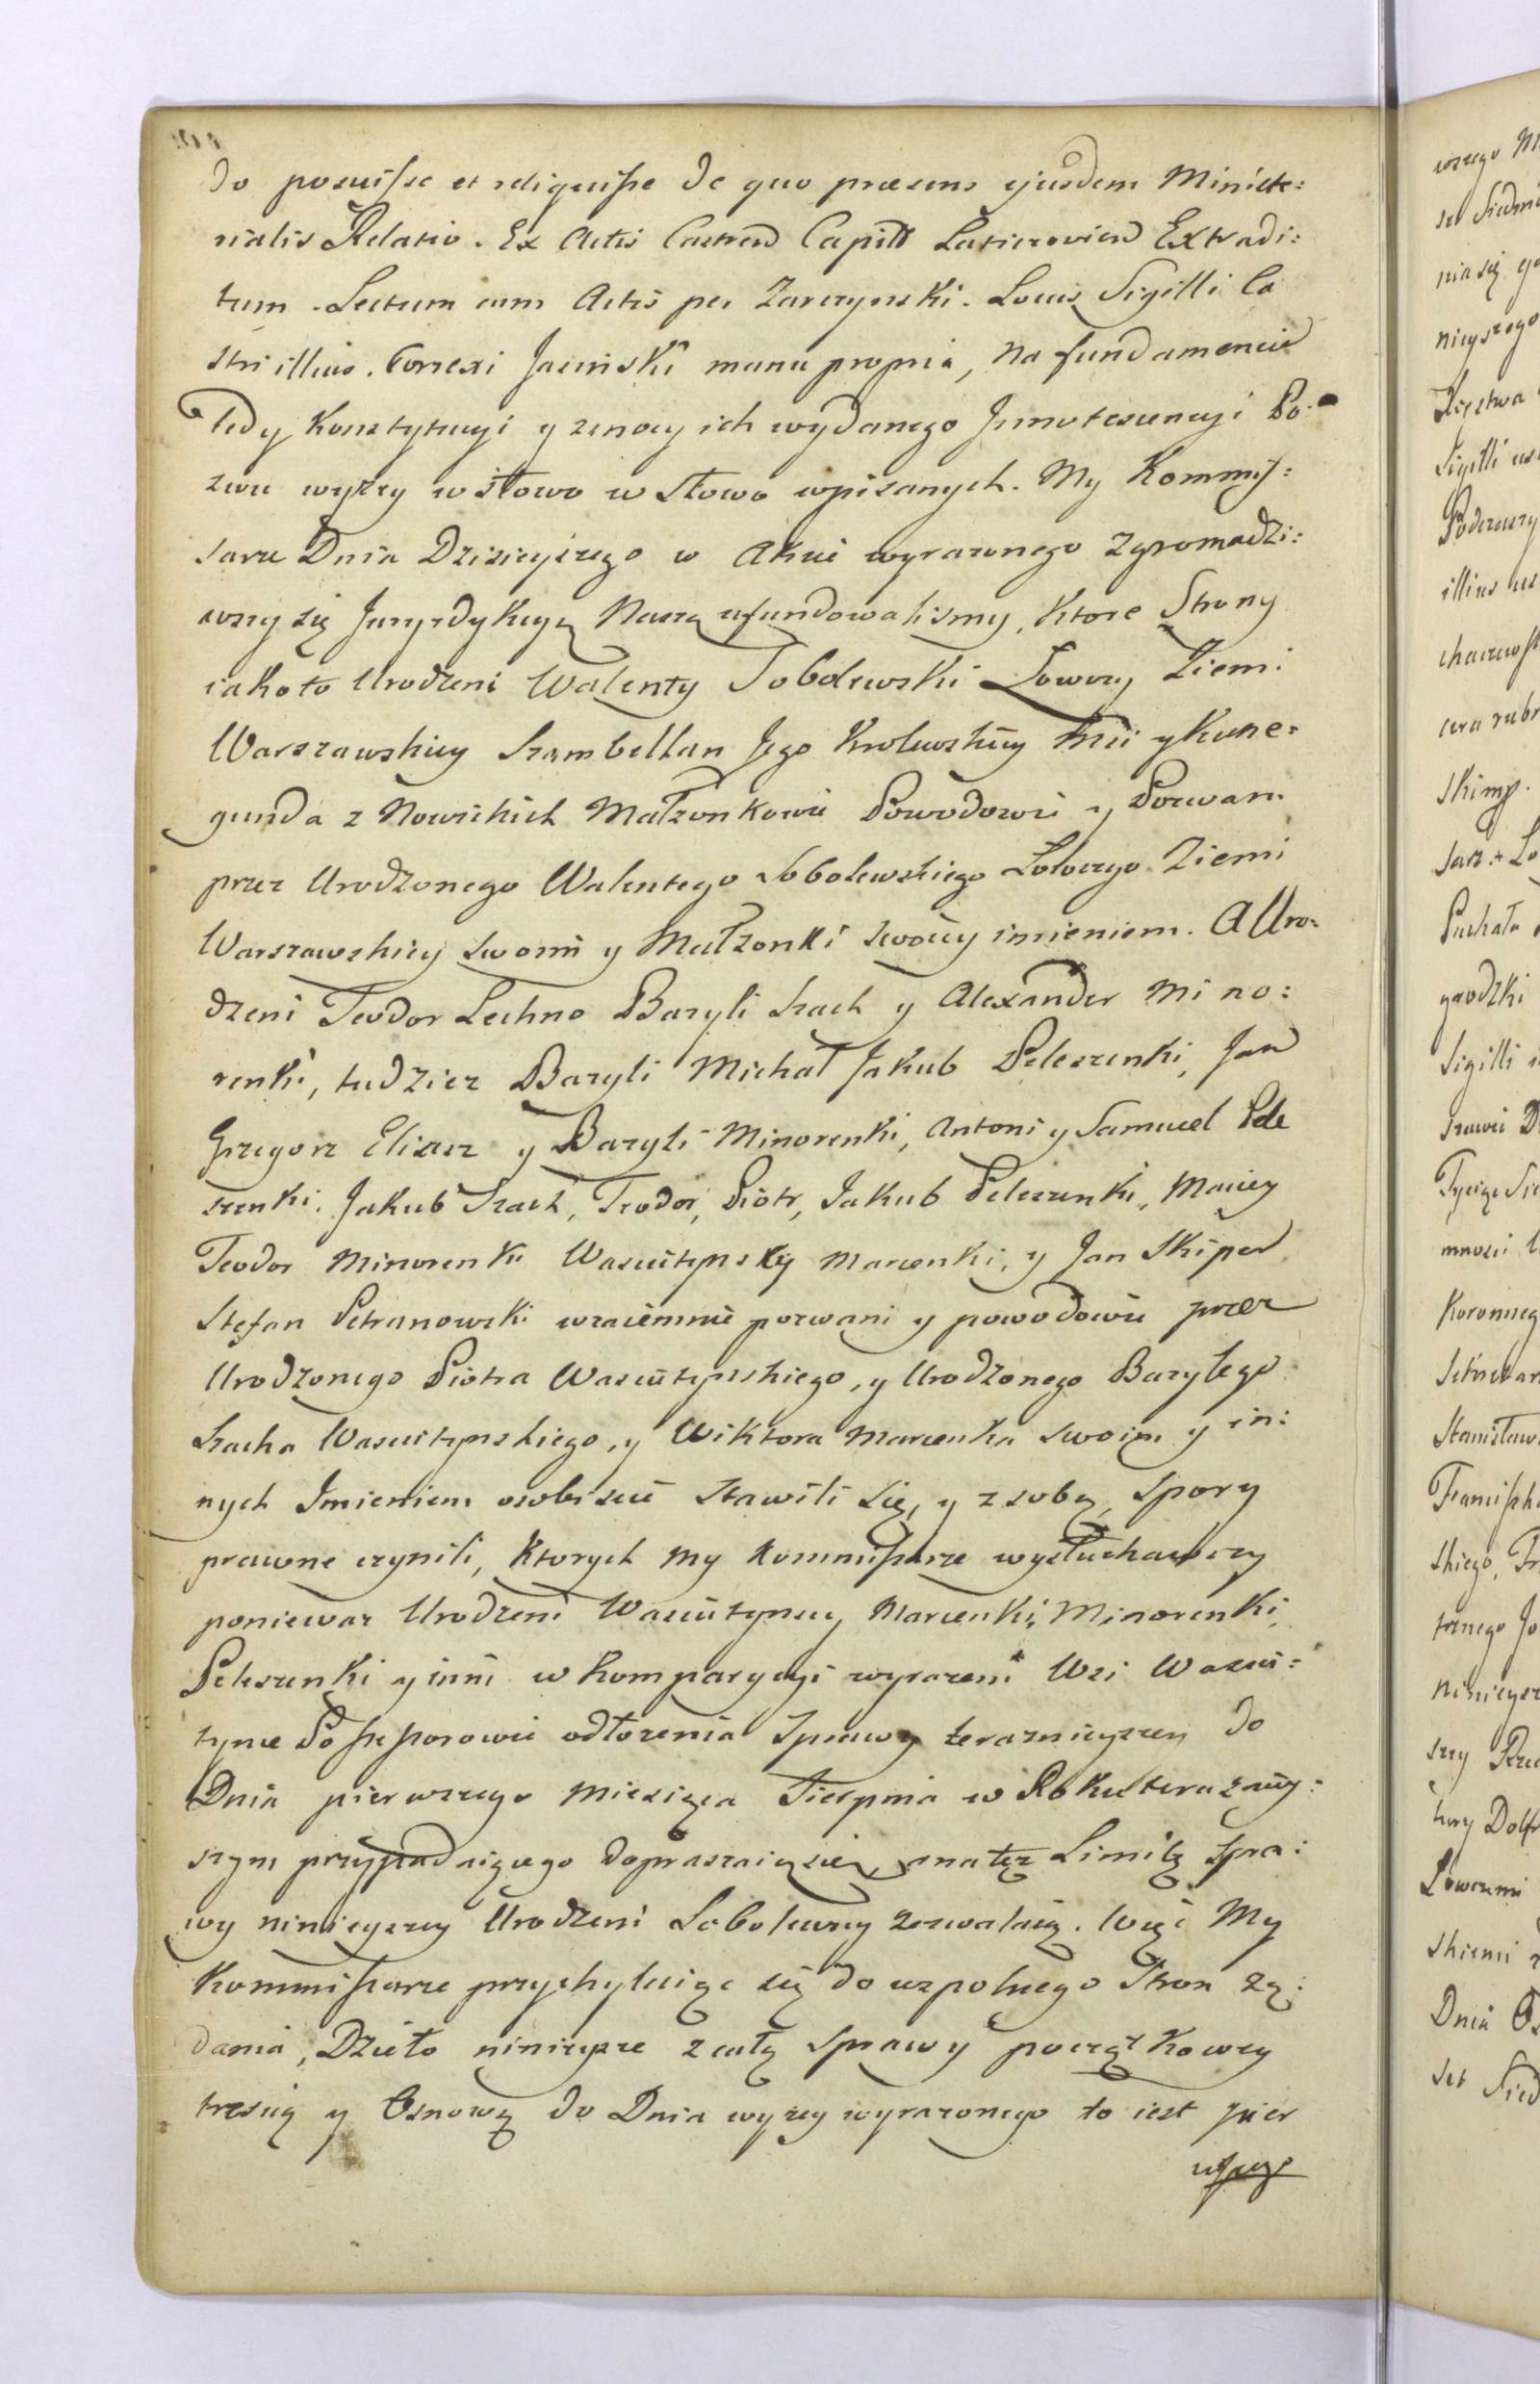 do posuisse et reliquisse de quo præsens ejusdem Ministe:
rialis Relatio. Ex Actis Castren Capitl Laticzovien Extradi:
tum. Lectum cum Actis per Zarczynski. Locus Sigilli Ca
stri illius. Correxi Jasinski manu propria, Na fundamencie
tedy Konstytucyi y zmocy ich wydanego Innotescencyi Po:
zwu wyzey w słowo w słowo wpisanych. My Kommis:
sarze Dnia Dzisieyszego w Akcie wyrazonego zgromadzi:
wszy się Juryzdykcyą Naszą ufundowalismy, Ktore Strony
iako to Urodzeni Walenty Sobolewski Łowczy Ziemi
Warszawskiey Szambellan Jego Krolewskiey Mci y Kune:
gunda z Nowickich Małzonkowie Powodowie y Pozwani
przez Urodzonego Walentego Sobolewskiego Łowczego Ziemi
Warszawskiey swoim y Małzonki swoiey imieniem. A Uro:
dzeni Teodor Lechno Bazyli Szach y Alexander Mino:
renki, tudziez Bazyli Michał Jakub Peleszenki, Jan
Grzegorz Eliasz y Bazyli Minorenki, Antoni y Samuel Pele
szenki. Jakub Szach, Teodor, Piotr, Jakub Peleszenki, Maciey
Teodor Minorenki Wasiutynscy Marcenki, y Jan Skiper
Stefan Petranowski wzaiemnie pozwani y powodowie przez
Urodzonego Piotra Wasiutynskiego, y Urodzonego Bazylego
Szacha Wasiutynskiego, y Wiktora Marcenka swoim y in:
nych Imieniem osobiscie stawili się, y z sobą spory
prawne czynili, Ktorych my Kommissarze wysłuchawszy
poniewaz Urodzeni Wasiutynscy Marcenki, Minorenki,
Peleszenki y inni w Komparycyi wyrazeni Wsi Wasiu:
tyniec Possessorowie odłozenia Sprawy terazniejszey do
Dnia pierwszego Miesiąca Sierpnia w Roku teraznie:
szym przypadaiącego dopraszaią się, a na tę Limitę Spra:
wy ninieyszey Urodzeni Sobolewscy zezwalaią. Więc My
Kommissarze przychylaiąc się do wspolnego Stron żą:
dania, Dzieło ninieysze z całą Sprawy początkowey
tresią y Osnową do Dnia wyzey wyrazonego to iest pier
wszego